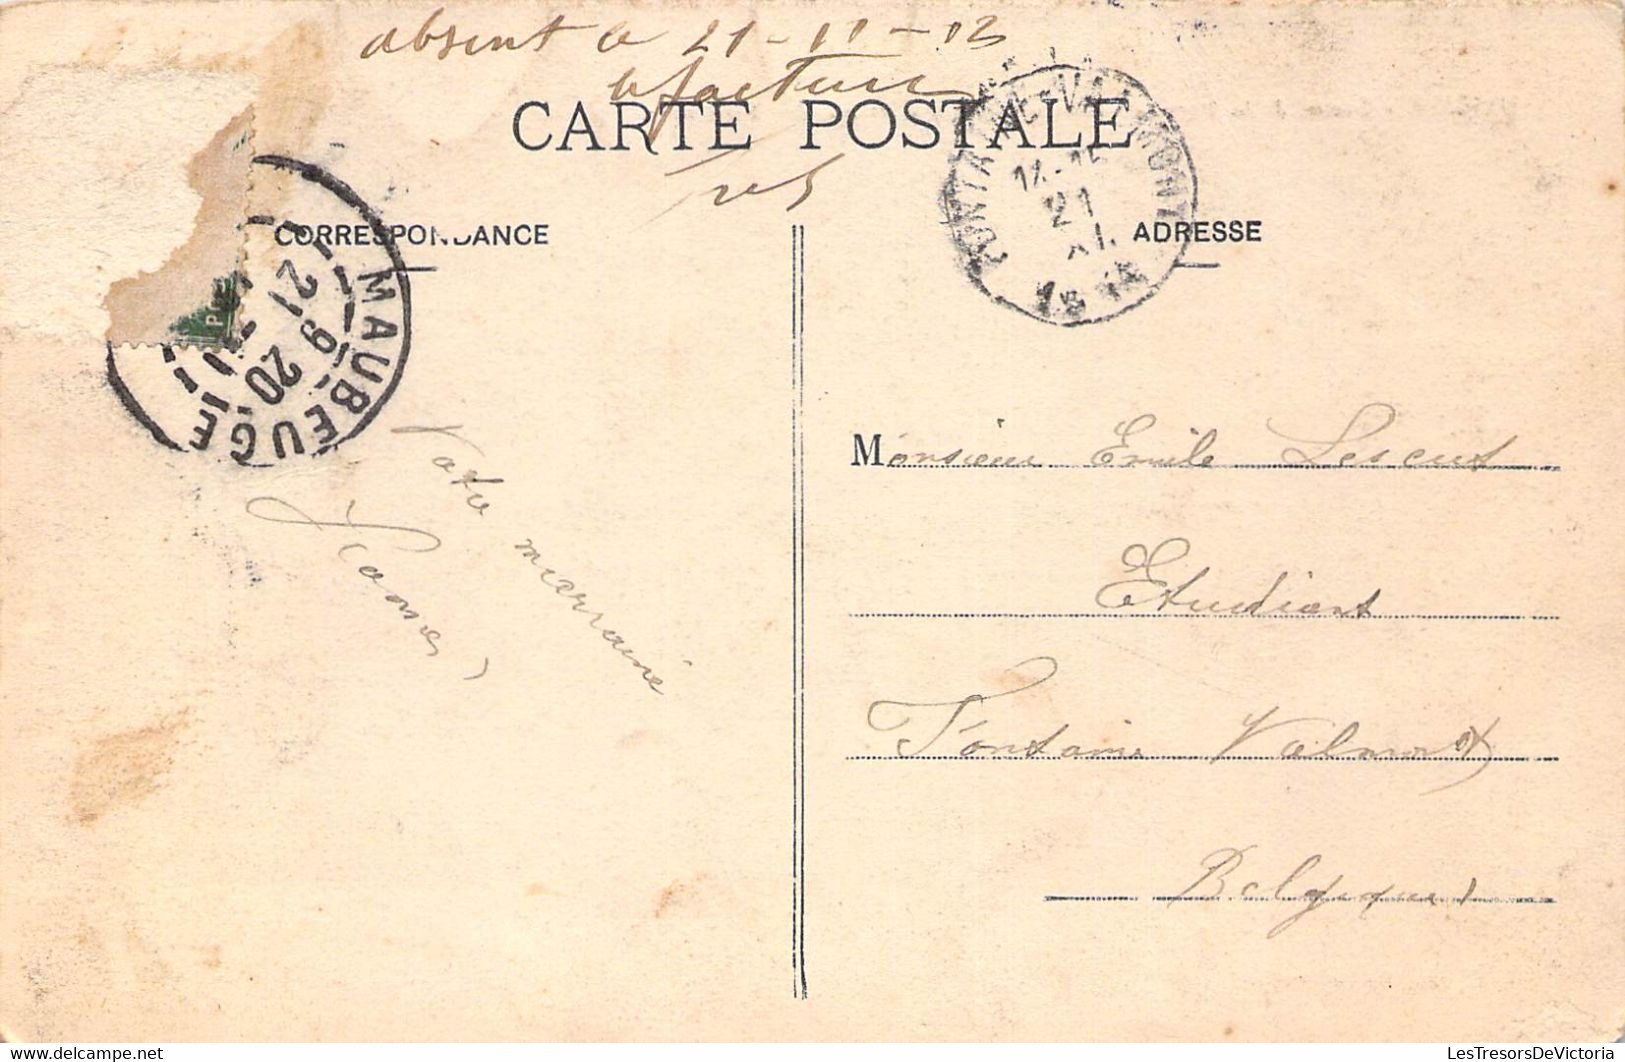 absent le 21-11-13
le facteur
CARTE POSTALE
CORRESPONDANCE
ADRESSE
MAUBEUGE
21
9 20
FONTAINE-VALMONT
21
XI
Monsieur Emile Lescut
Etudiant
Fontaine Valmont
Belgique
Votre
LesTresorsDeVictoria.com